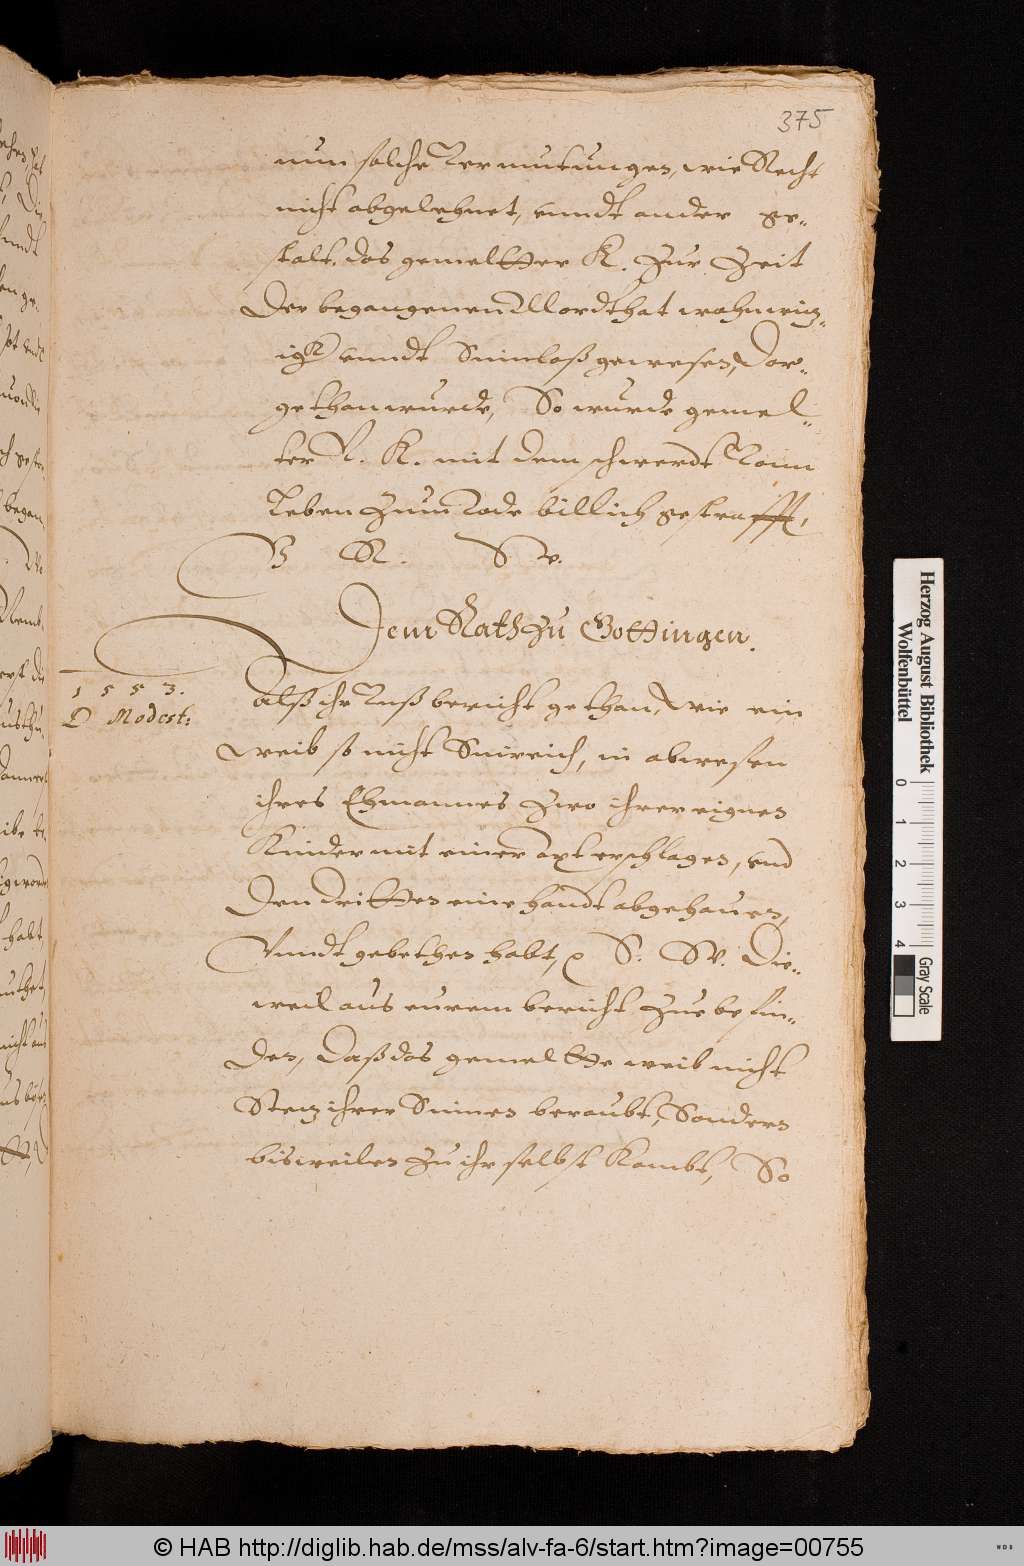 375
nun solche Vermutungen, wie Recht
nicht abgelehnet, vnndt ander ge-
stalt, das gemeltter K. zur Zeit
Der begangenen Mordthat wahnwitz-
igk vnndt Sinnloß gewesen, Dar-
gethan wurde, So wurde gemel-
ter K. mit dem schwerdt Vom
Leben zum Tode billich gestrafft,
V R. W.
Dem Rath zu Gottingen.
1553.
D Modest:
Alß ihr Vnß bericht gethan, wie ein
weib so nicht Sinreich, in abwesen
ihres Ehmannes zwo ihrer eignen
Kinder mit einer axt erschlagen, vnd
Dem dritten eine handt abgehauen,
Vnndt gebethen habt, Die-
weil aus eurem bericht zue befin-
den, Daß das gemeltte weib nicht
Stetz ihrer Sinnen beraubt, Sondern
bisweilen zu ihr selbst Kombt, So
Herzog August Bibliothek
Wolfenbüttel
0 1 2 3 4
Gray Scale
© HAB http://diglib.hab.de/mss/alv-fa-6/start.htm?image=00755